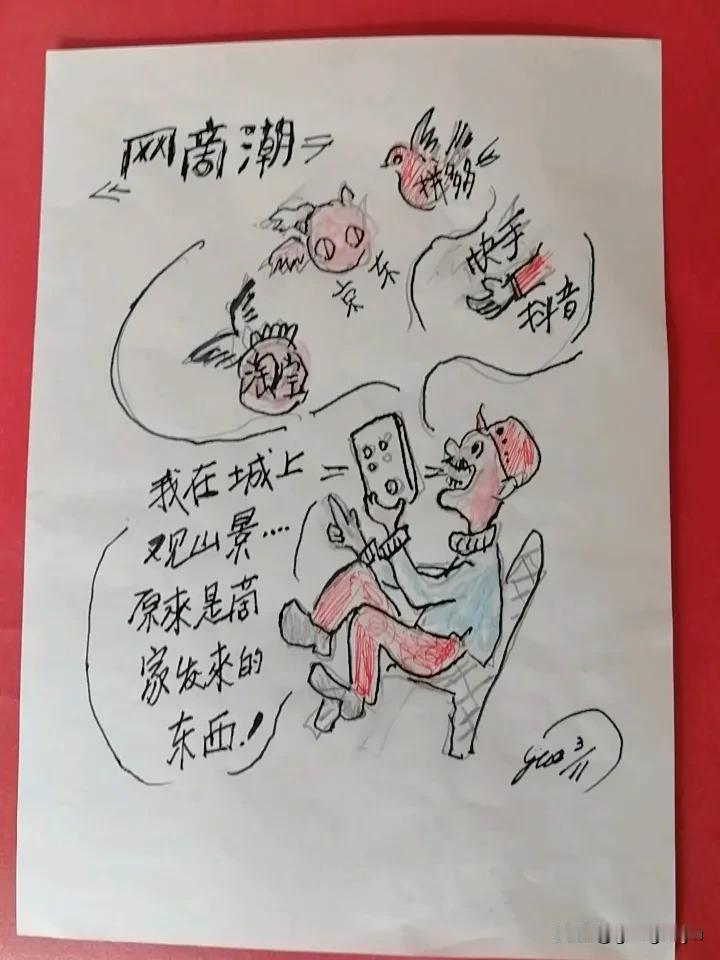 网商潮
拼多多
京东
快手
抖音
淘宝
我在城上
观山景····
原来是商
家发来的
东西.!
3/11